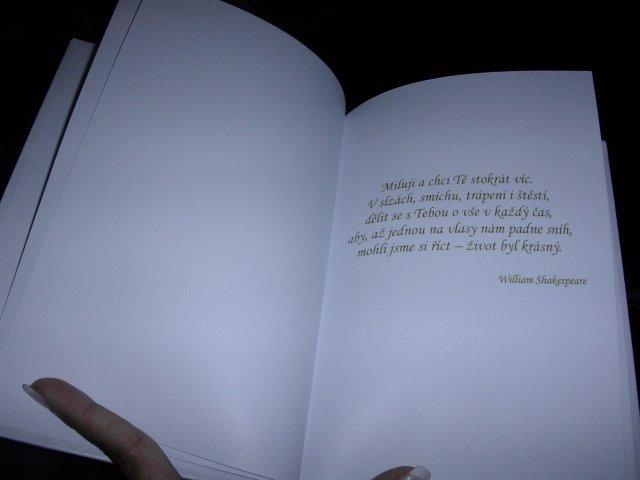 Miluji a chci Tě stokrát víc.
V slzách, smíchu, trápení i štěstí,
dělit se s Tebou o vše v každý čas,
aby, až jednou na vlasy nám padne sníh,
mohli jsme si říct – život byl krásný.
William Shakespeare